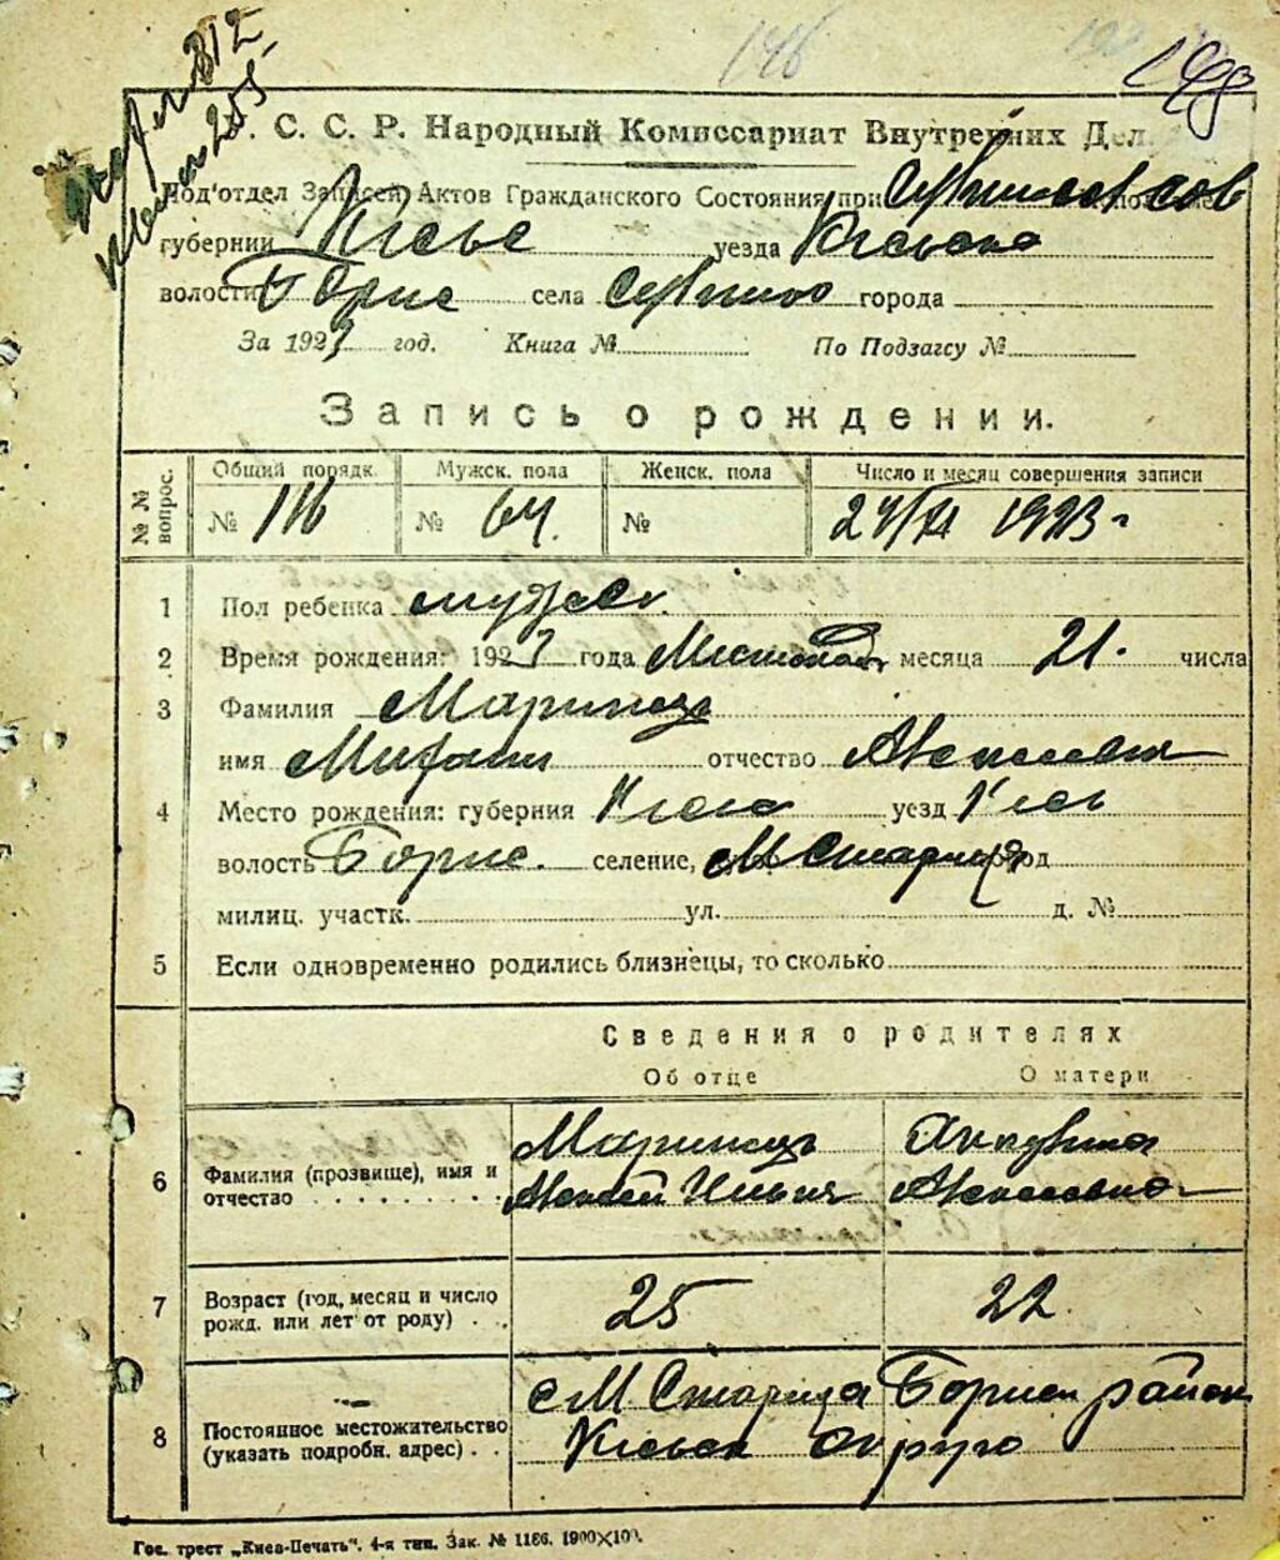 146
С. С. Р. Народный Комиссариат Внутренних Дел
Под'отдел Записей Актов Гражданского Состояния при
губернии Киевс уезда Киевско
волости Борис села города
За 1923 год. Книга № По Подзагсу №
Запись о рождении.
№ № вопрос. Общий порядк. Мужск. пола Женск. пола Число и месяц совершения записи
№ 116 № 64. № 24/XI 1923 г
1 Пол ребенка мужск.
2 Время рождения: 1923 года Листопад месяца 21. числа
3 Фамилия Маринич
имя отчество Алексеевич
4 Место рождения: губерния Киевс уезд Киев
волость Борис. селение, М Старица город
милиц. участк. ул. д. №
5 Если одновременно родились близнецы, то сколько
Сведения о родителях
Об отце О матери
6 Фамилия (прозвище), имя и отчество
Маринич
Алексей Ильич Алексеевна
7 Возраст (год, месяц и число рожд. или лет от роду) 25 22
8 Постоянное местожительство (указать подробн. адрес)
с М Старица Борисп район
Киевск округо
Гос. трест „Киев-Печать“. 4-я тип. Зак. № 1186. 1900×100.